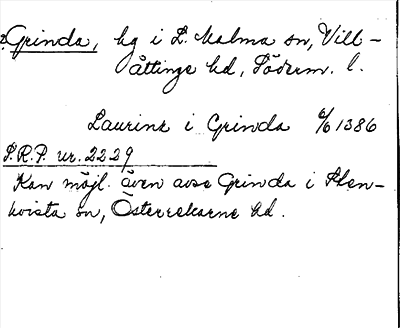 Grinda, hg i L. Malma sn, Vill-
åttinge hd, Söderm. l.
Laurinz i Grinda 6/6 1386
S.R.P. nr. 2229
Kan möjl. även avse Grinda i Sten-
kvista sn, Österrekarne hd.